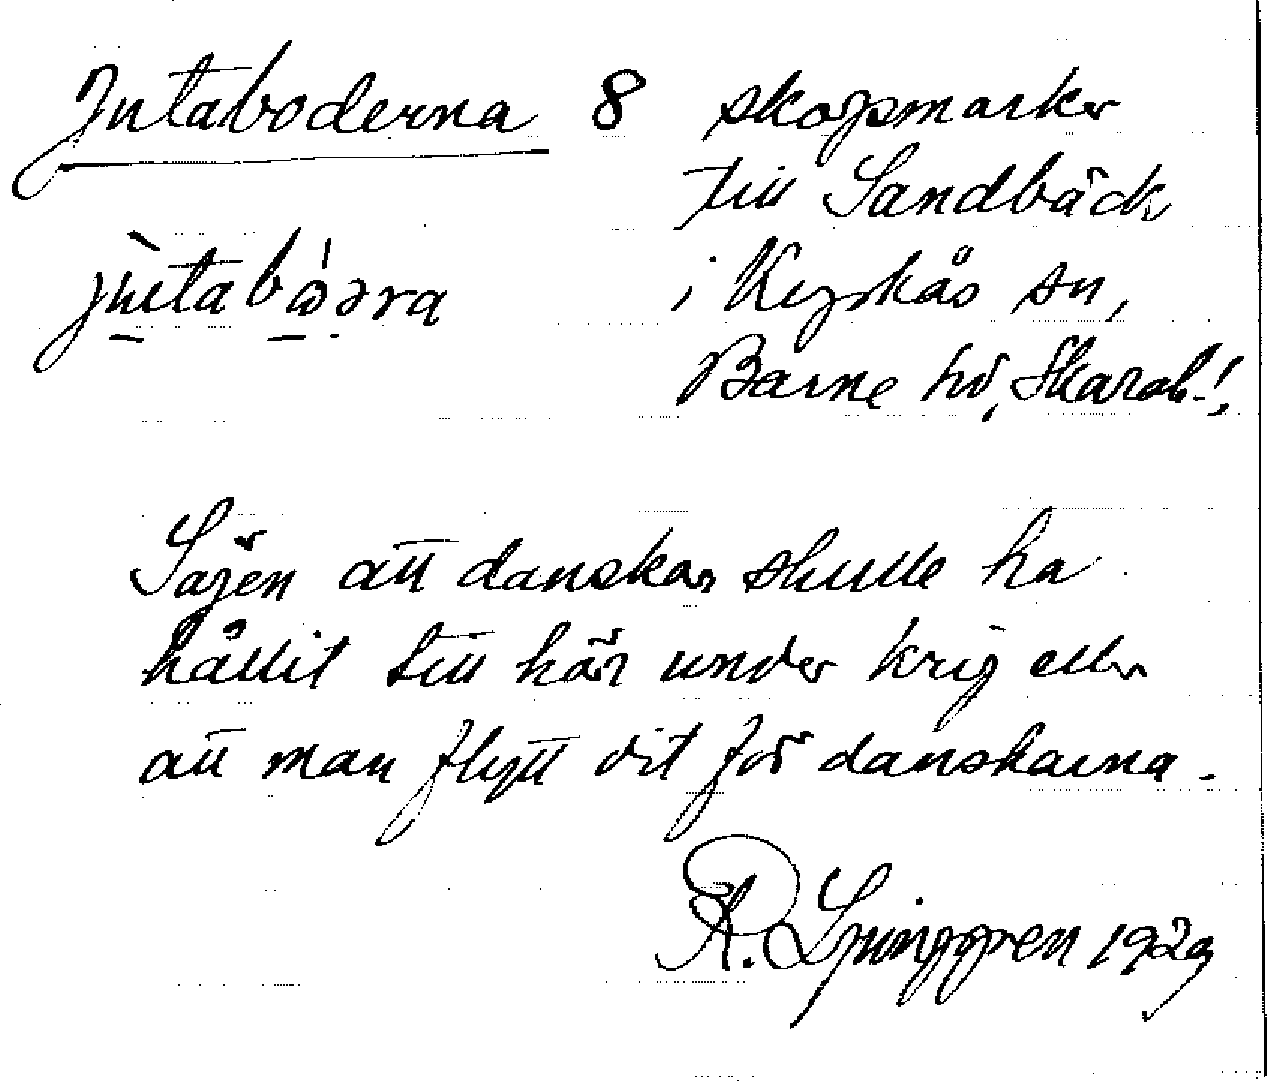 Jutaboderna 8 skogsmarker
till Sandbäck
jùtabòərra i Kyrkås sn,
Barne hd, Skarab. l.
Sägen att danskar skulle ha
hållit till här under krig eller
att man flytt dit för danskarna.
R. Ljunggren 1929